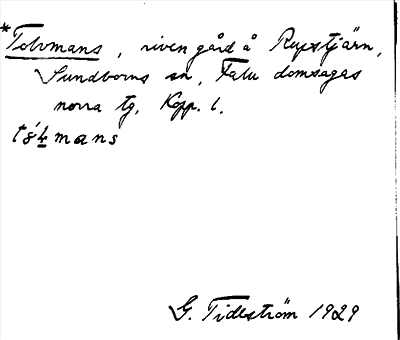 *Tolvmans, riven gård å Repstjärn,
Sundborns sn, Falu domsagas
norra tg, Kopp. l.
tå̀l̲mans
G. Tidström 1929